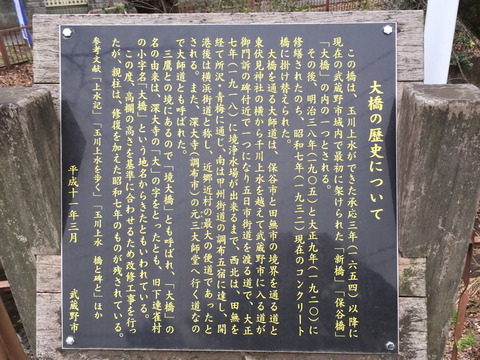 大橋の歴史について
この橋は、玉川上水ができた承応三年(一六五四)以降に
現在の武蔵野市域内で最初に架けられた「新橋」「保谷橋」
「大橋」の内の一つとされる。
その後、明治三八年(一九〇五)と大正九年(一九二〇)に
修繕されたのち、昭和七年(一九三二)現在のコンクリート
橋に掛け替えられた。
大橋を通る大師道は、保谷市と田無市の境界を通る道と
東伏見神社の横から千川上水を越えて武蔵野市に入る道が
御門訴の碑付近で一つになり五日市街道を渡る道で、大正
七年(一九一八)に境浄水場が出来るまで、西北は、田無を
経て所沢・青梅に通じ、南は甲州街道の調布五宿に達し、開
港後は横浜街道と称し、近郷近村の最大の便道であったと
される。また、深大寺(調布市)の元三大師堂へ行く道なの
で大師道とも呼ばれた。
三鷹との境にあるので「境大橋」とも呼ばれ、「大橋」の
名の由来は、深大寺の「大」の字をとったとも、旧下連雀村
の小字名「大橋」という地名からきたともいわれている。
この度、高欄の高さを基準に合わせるため改修工事を行っ
たが、親柱は、修復を加えた昭和七年のものが残されている。
参考文献「上水記」「玉川上水を歩く」「玉川上水 橋と碑と」ほか
平成十一年三月 武蔵野市